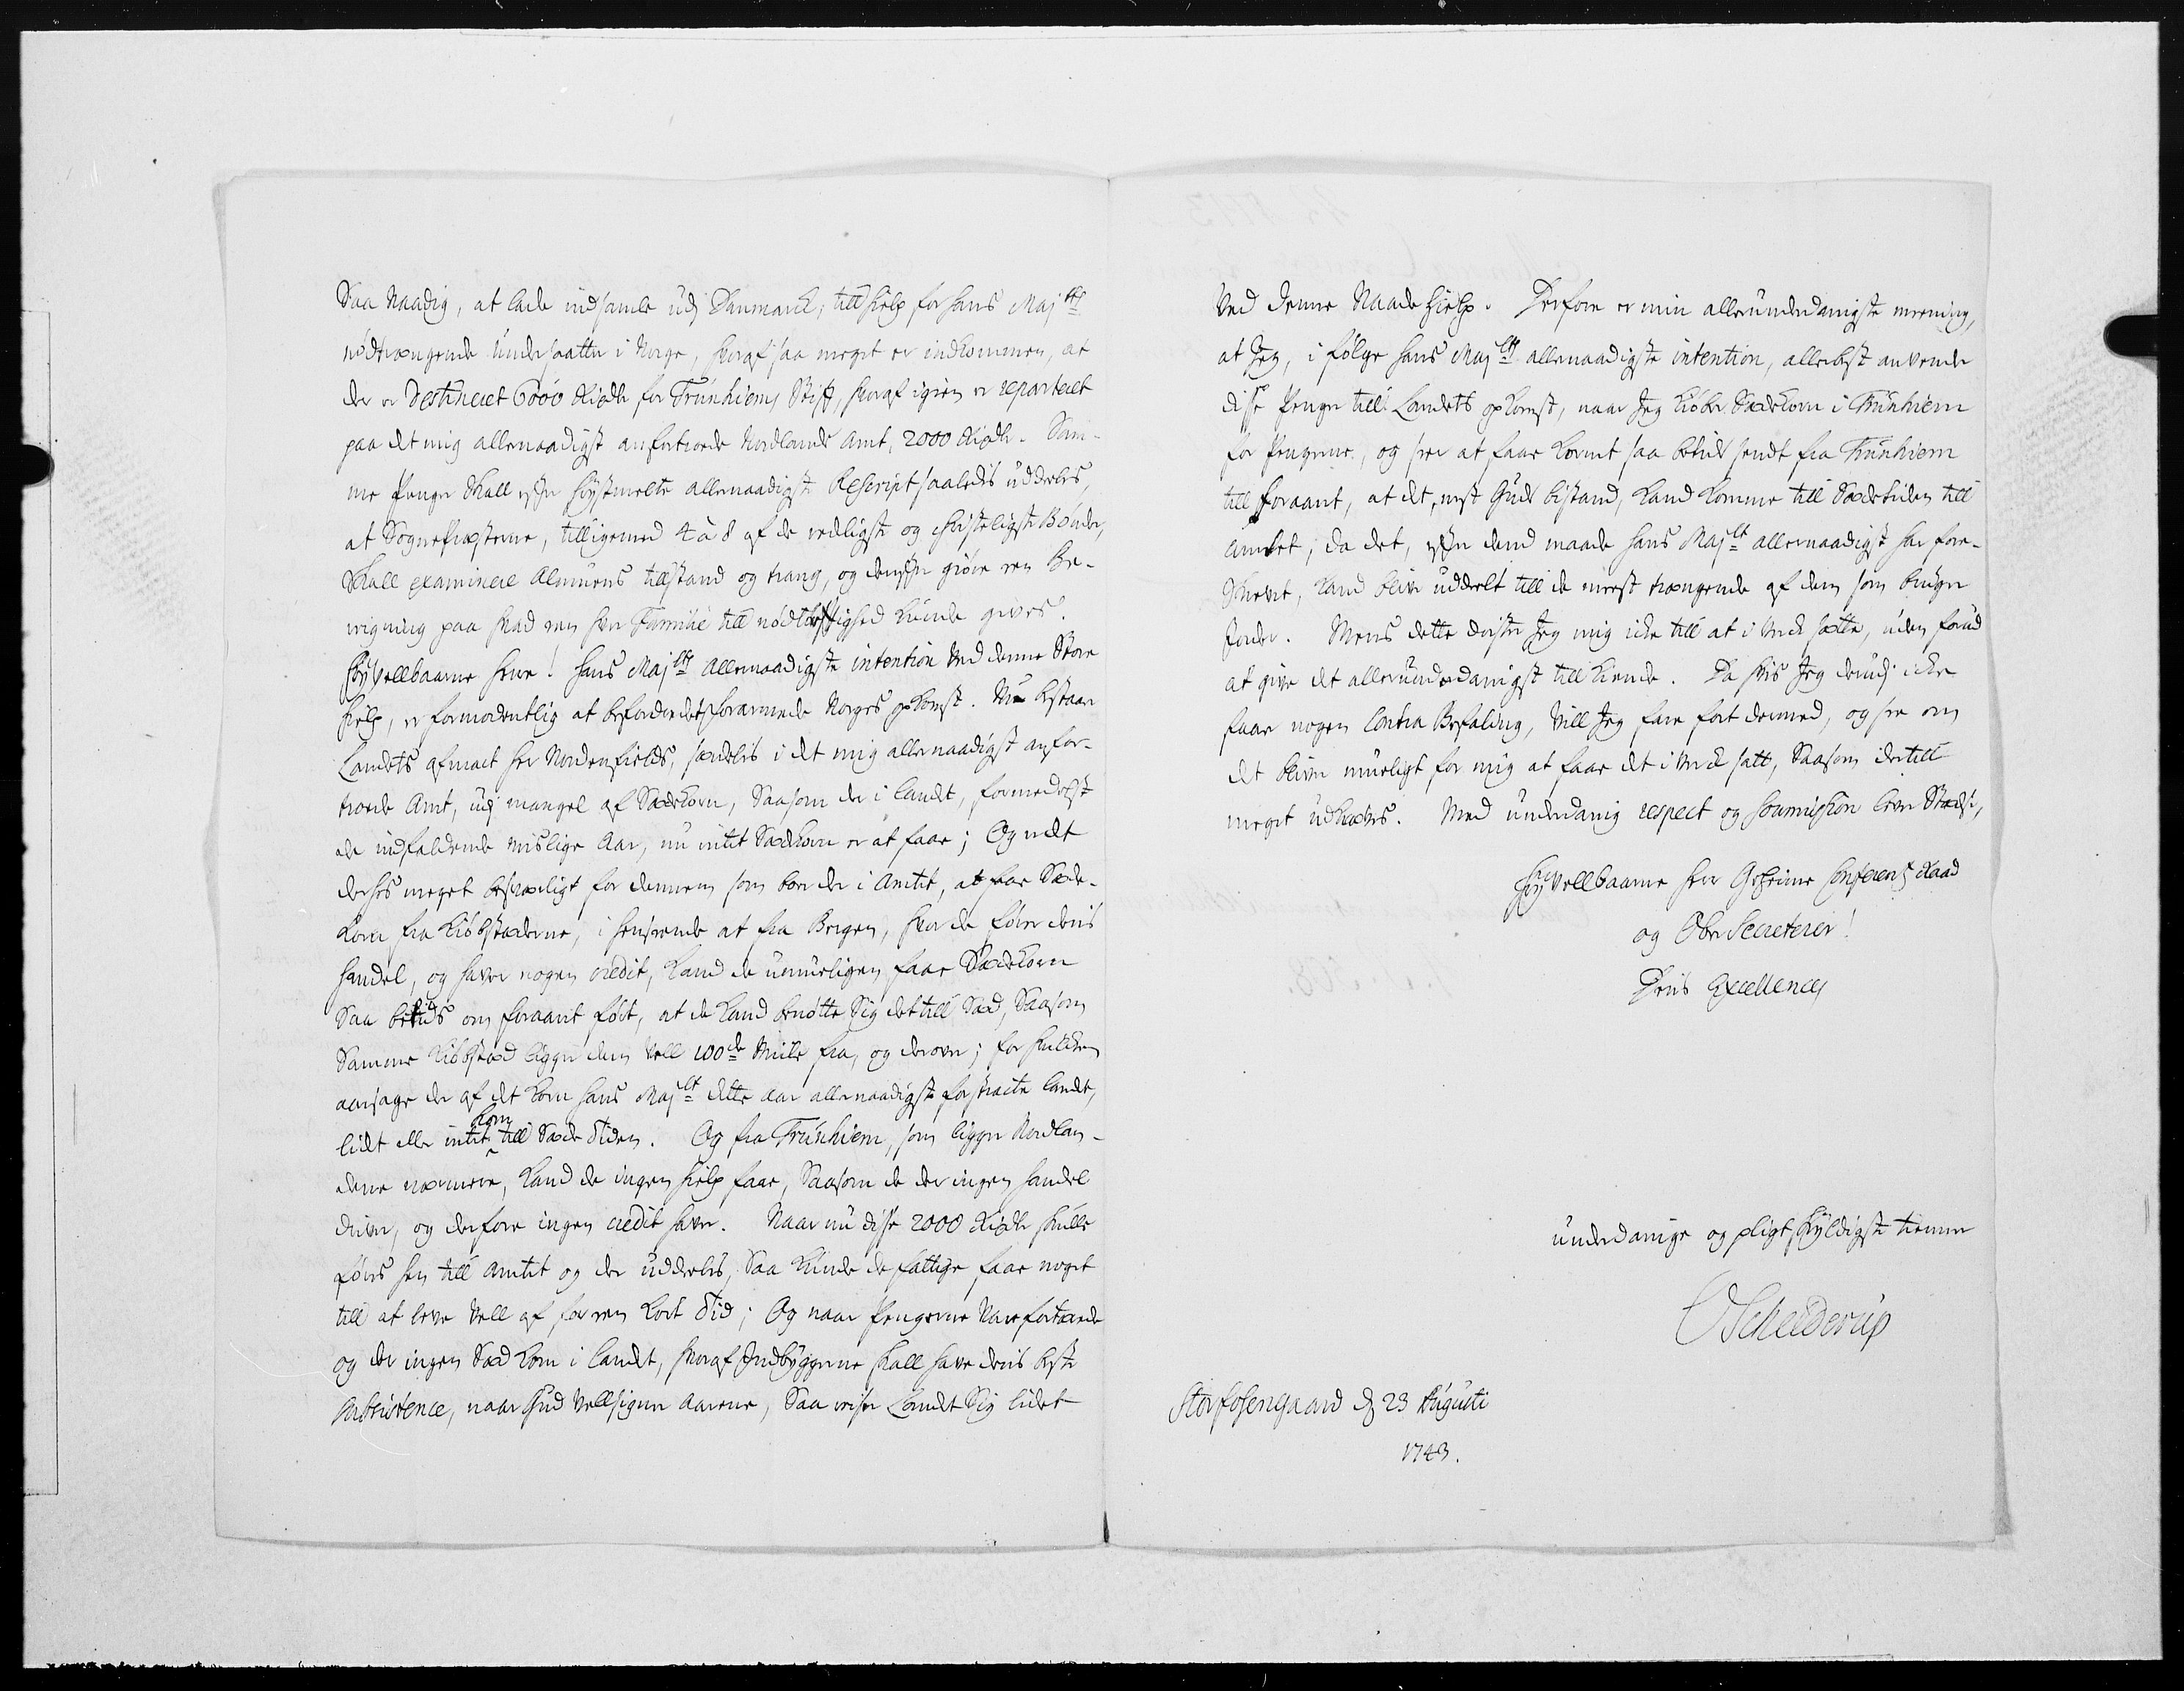 Saa Naadig, at lade indsamle udj Danmarck, till hielp for hans Maj.tts
nødtrængende Undersaatter i Norge, hvoraf saa meget er indkommen, at
der er destineret 6000 Rixdlr for Trunhiems Stift, hvoraf igien er reparteret
paa det mig allernaadigst anfortroede Nordlands Amt, 2000 Rixdlr. Sam-
me Penger skall efter høystmelte allernaadigste Rescript saaledes uddeeles,
at Sognepræsterne, tilligemed 4 à 8 af de redligste og christeligste Bønder,
skall examinere Almuens tillstand og trang, og derefter giøre een Be-
reigning paa hvad een hver Familie till nødtørfftighed kunde gives.
HøyVellbaarne Herre! Hans Maj.tts allernaadigste intention ved denne store
hielp, er formodentlig at befordre det forarmede Norges opkomst. Nu bestaar
Landets afmact her Nordenfields, særdelis i det mig allernaadigst anfor-
troede Amt, udj mangel af Sædekorn, Saasom der i landet, formedelst
de indfaldende mislige Aar, nu intet Sædekorn er at faae; Og er det
der hos meget besværligt for dennem som boer der i Amtet, at faae Sæde-
korn fra Kiøbstæderne, i henseende at fra Bergen, hvor de fører deris
handel, og haver nogen credit, kand de umueligen faae Sædekorn
Saa betids om foraaret ført, at de kand benøtte Sig det till Sæd, Saasom
Samme Kiøbstæd ligger dem vell 100de Miile fra, og derover; for hvilcken
aarsage der af det korn hans Maj.tt dette aar allernaadigst forstracte landet,
lidt eller intet kom till Sæde Tiden. Og fra Trunhiem, som ligger Nordlan-
dene nærmere, kand de ingen hielp faae, Saasom de der ingen handel
driver, og derfore ingen credit haver. Naar nu disse 2000 Rixdlr skulle
føres hen till Amtet og der uddeeles, Saa kunde de fattige faae noget
till at leve vell af for een kort Tid; Og naar Pengerne vare fortærede
og der ingen Sæd kom i landet, hvoraf Indbyggerne skall have deris beste
Subsistence, naar Gud vellsigner Aarene, Saa reiser Landet Sig lidet
ved denne Naade Hielp. Derfore er min allerunderdanigste meening,
at Jeg, i følge hans Maj.tts allernaadigste intention, allerbest anvender
disse Penger till Landets opkomst, naar Jeg kiøber Sædekorn i Trunhiem
for Pengerne, og seer at faae kornet saa betids sendt fra Trunhiem
till foraaret, at det, nest Guds bistand, kand komme till Sædetiden till
Amtet; da det, efter dend maade hans Maj.tt allernaadigst har fore-
skrevet, kand blive uddeelt till de meest trængende af dem som bruger
Jorder. Mens dette drister Jeg mig icke till at i verck sætte, uden forud
at give det allerunderdanigst till kiende. Da hvis Jeg derudj icke
faar nogen Contra Befaling, vill Jeg fare fort dermed, og see om
det bliver mueligt for mig at faae det i verck satt, Saasom dertill
meget udkræves. Med underdanig respect og soumission lever stedse,
HøyVellbaarne Herr Geheime Conferentz Raad
og Ober Secreterer!
Deris Excellences
underdanige og pligtskyldigste tienner
O Schelderup
Storfosengaard d. 23 Augusti
1743.